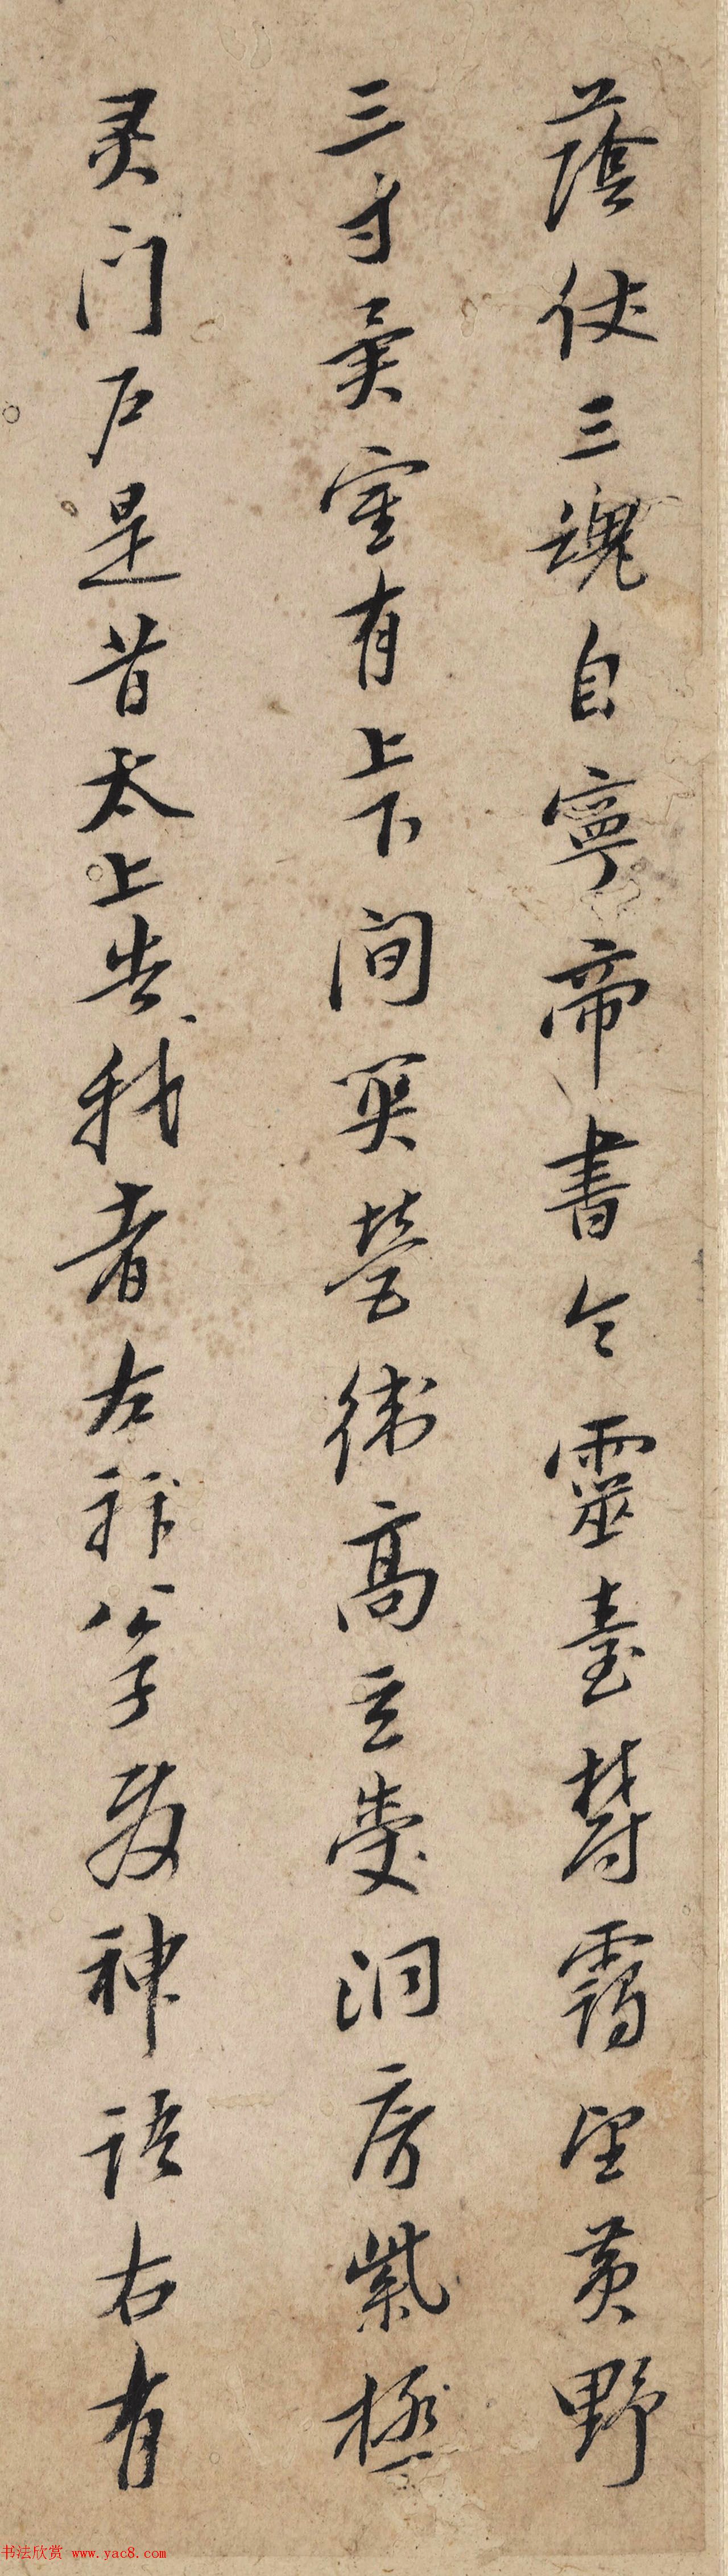 蔭伏三魂自寧帝書命靈臺欝靄望黄野
三寸異室有上下间関營衛高玄受洞房紫極
灵门户是昔太上告我者左神公子發神語右有
书法欣赏 www.yac8.com